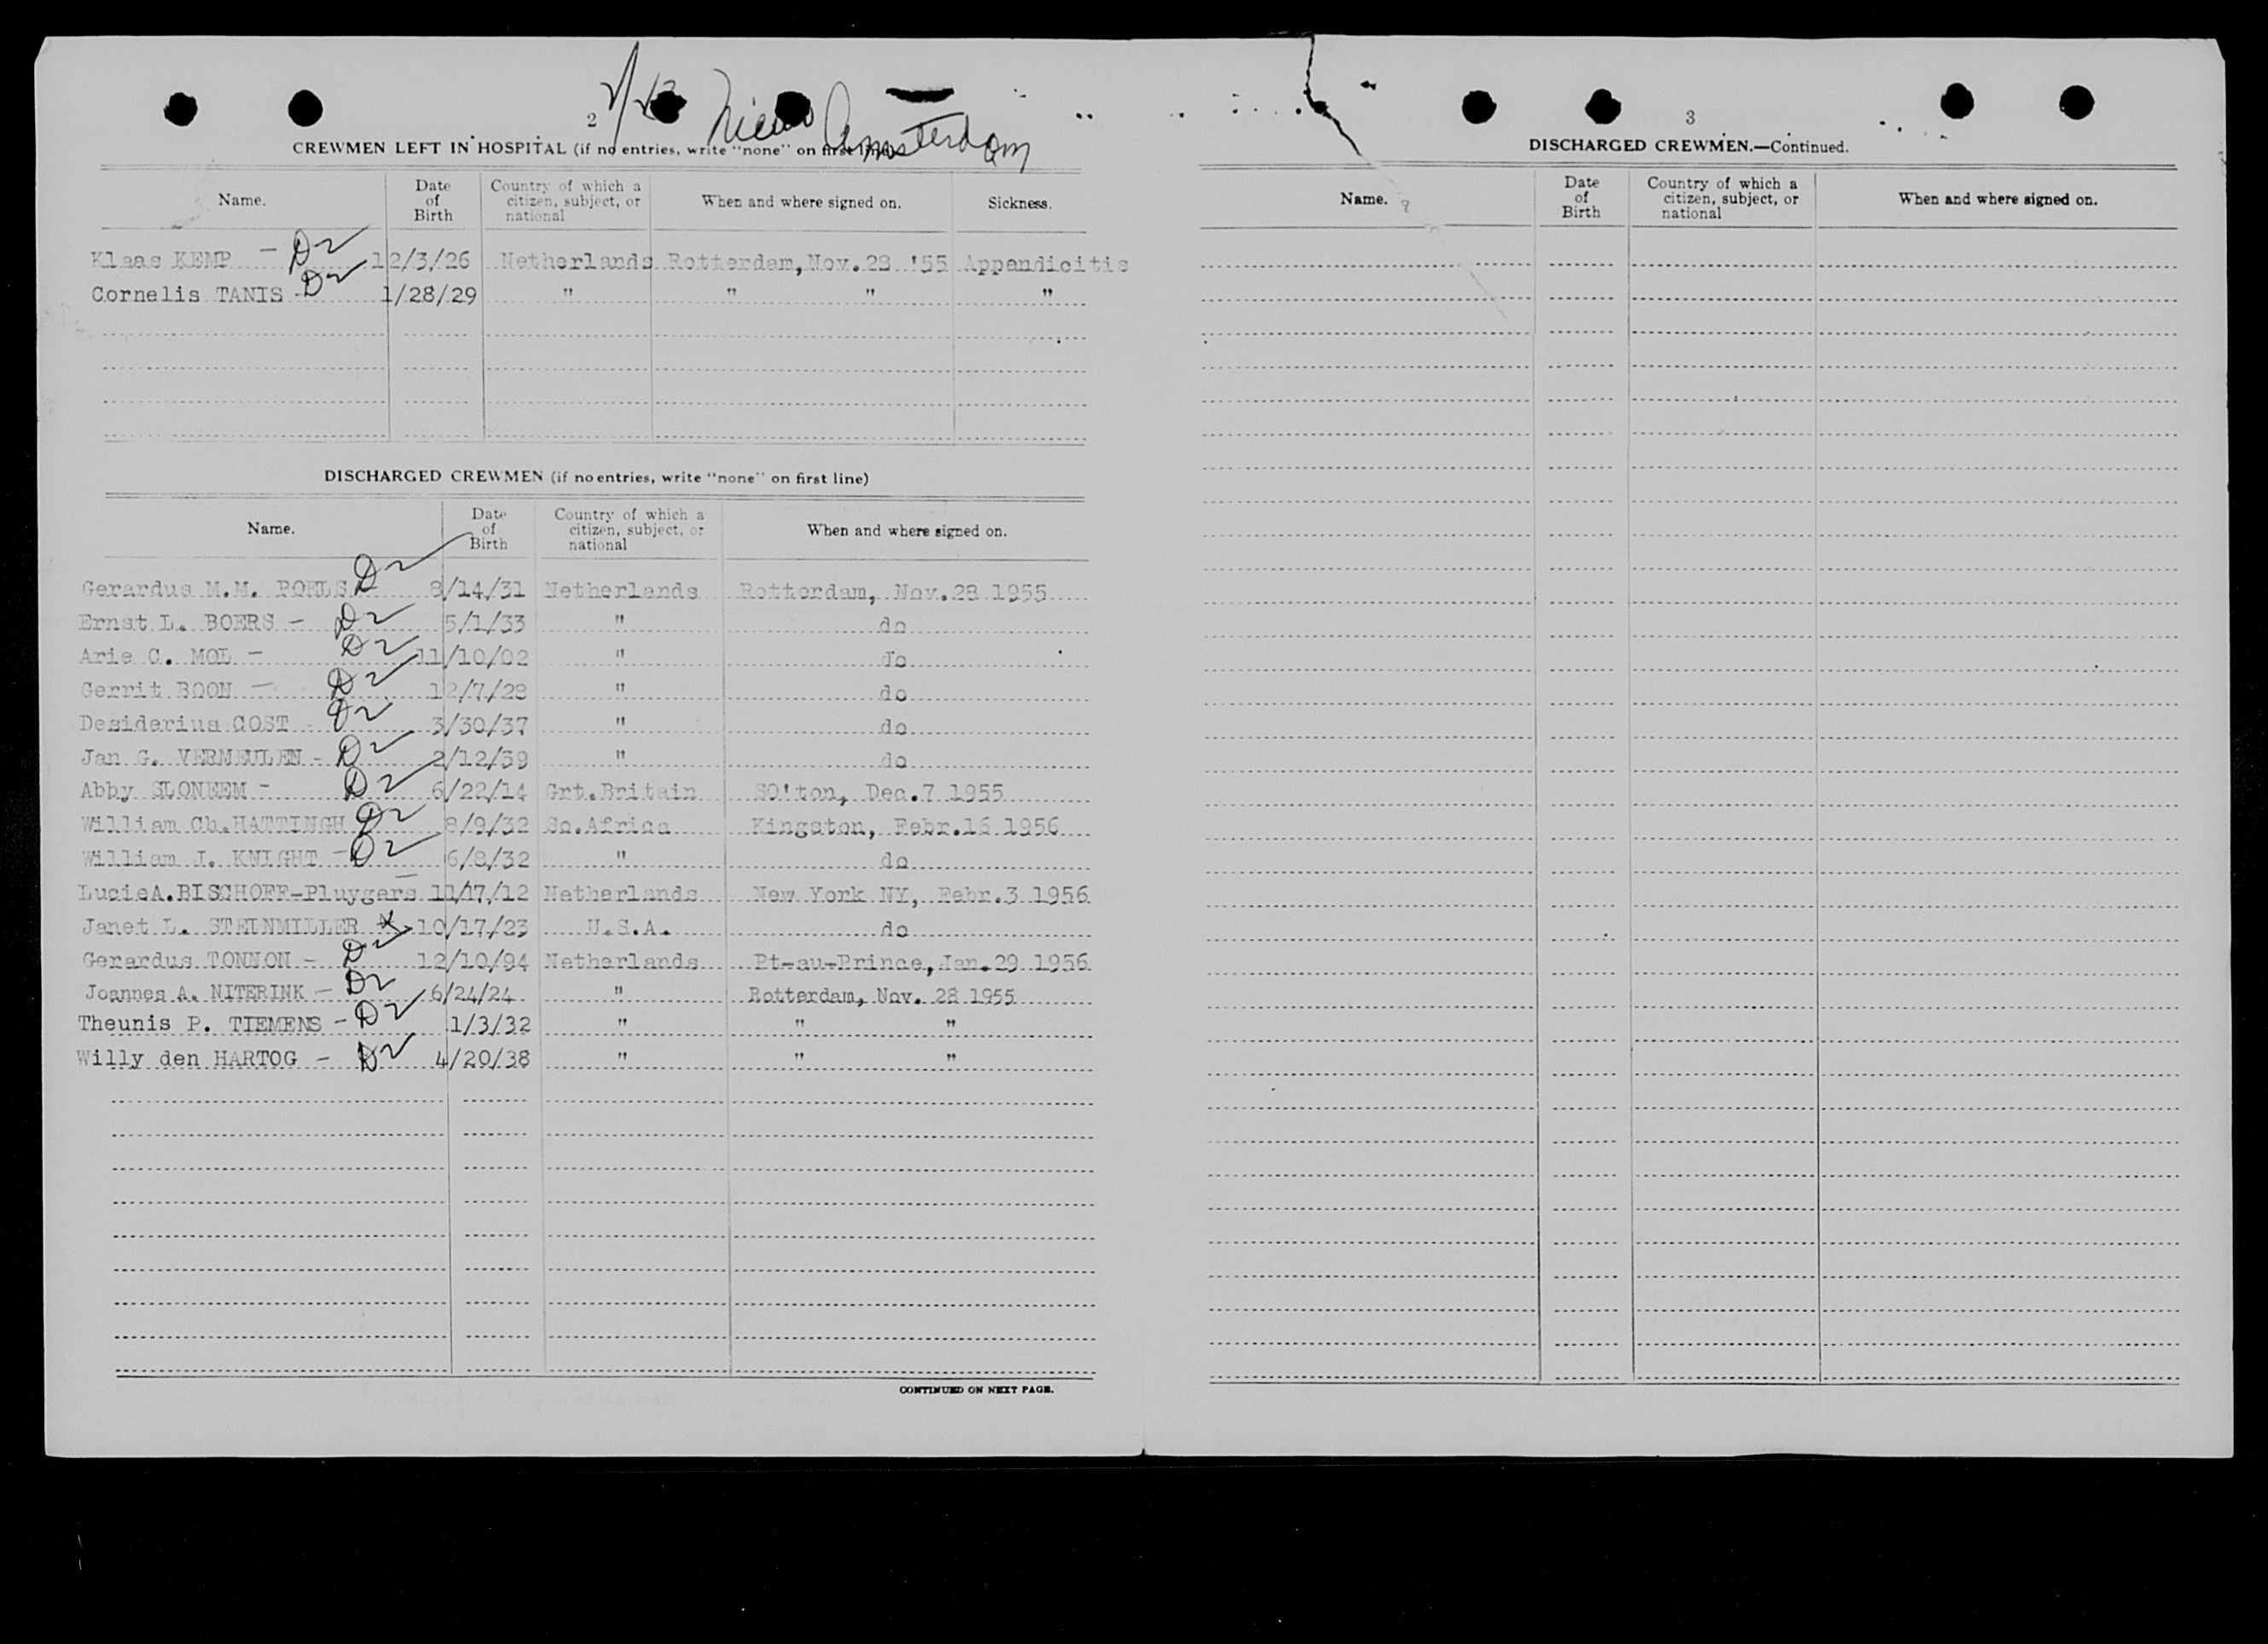 2/23 Nieuw Amsterdam
2
CREWMEN LEFT IN HOSPITAL (if no entries, write "none" on first line)
Name. Date of Birth Country of which a citizen, subject, or national When and where signed on. Sickness.
Klaas KEMP - D2 12/3/26 Netherlands Rotterdam, Nov.28 '55 Appendicitis
Cornelis TANIS - D2 1/28/29 " " " "
DISCHARGED CREWMEN (if no entries, write "none" on first line)
Name. Date of Birth Country of which a citizen, subject, or national When and where signed on.
Gerardus M.M. ROELS D2 8/14/31 Netherlands Rotterdam, Nov.28 1955
Ernst L. BOERS - D2 5/1/33 " do
Arie C. MOL - D2 11/10/02 " do
Gerrit BOON - D2 12/7/28 " do
Desiderius COST - D2 3/30/37 " do
Jan G. VERMEULEN - D2 2/12/39 " do
Abby SLONEEM - D2 6/22/14 Grt.Britain SO'ton, Dec.7 1955
William Ch.HATTINGH D2 8/9/32 So.Africa Kingston, Febr.16 1956
William J. KNIGHT - D2 6/8/32 " do
LucieA.BISCHOFF-Pluygers 11/17/12 Netherlands New York NY, Febr.3 1956
Janet L. STEINMILLER 10/17/23 U.S.A. do
Gerardus TONNON - D2 12/10/94 Netherlands Pt-au-Prince, Jan.29 1956
Joannes A. NITERINK - D2 6/24/24 " Rotterdam, Nov. 28 1955
Theunis P. TIEMENS - D2 1/3/32 " " "
Willy den HARTOG - D2 4/20/38 " " "
CONTINUED ON NEXT PAGE.
3
DISCHARGED CREWMEN.—Continued.
Name. Date of Birth Country of which a citizen, subject, or national When and where signed on.